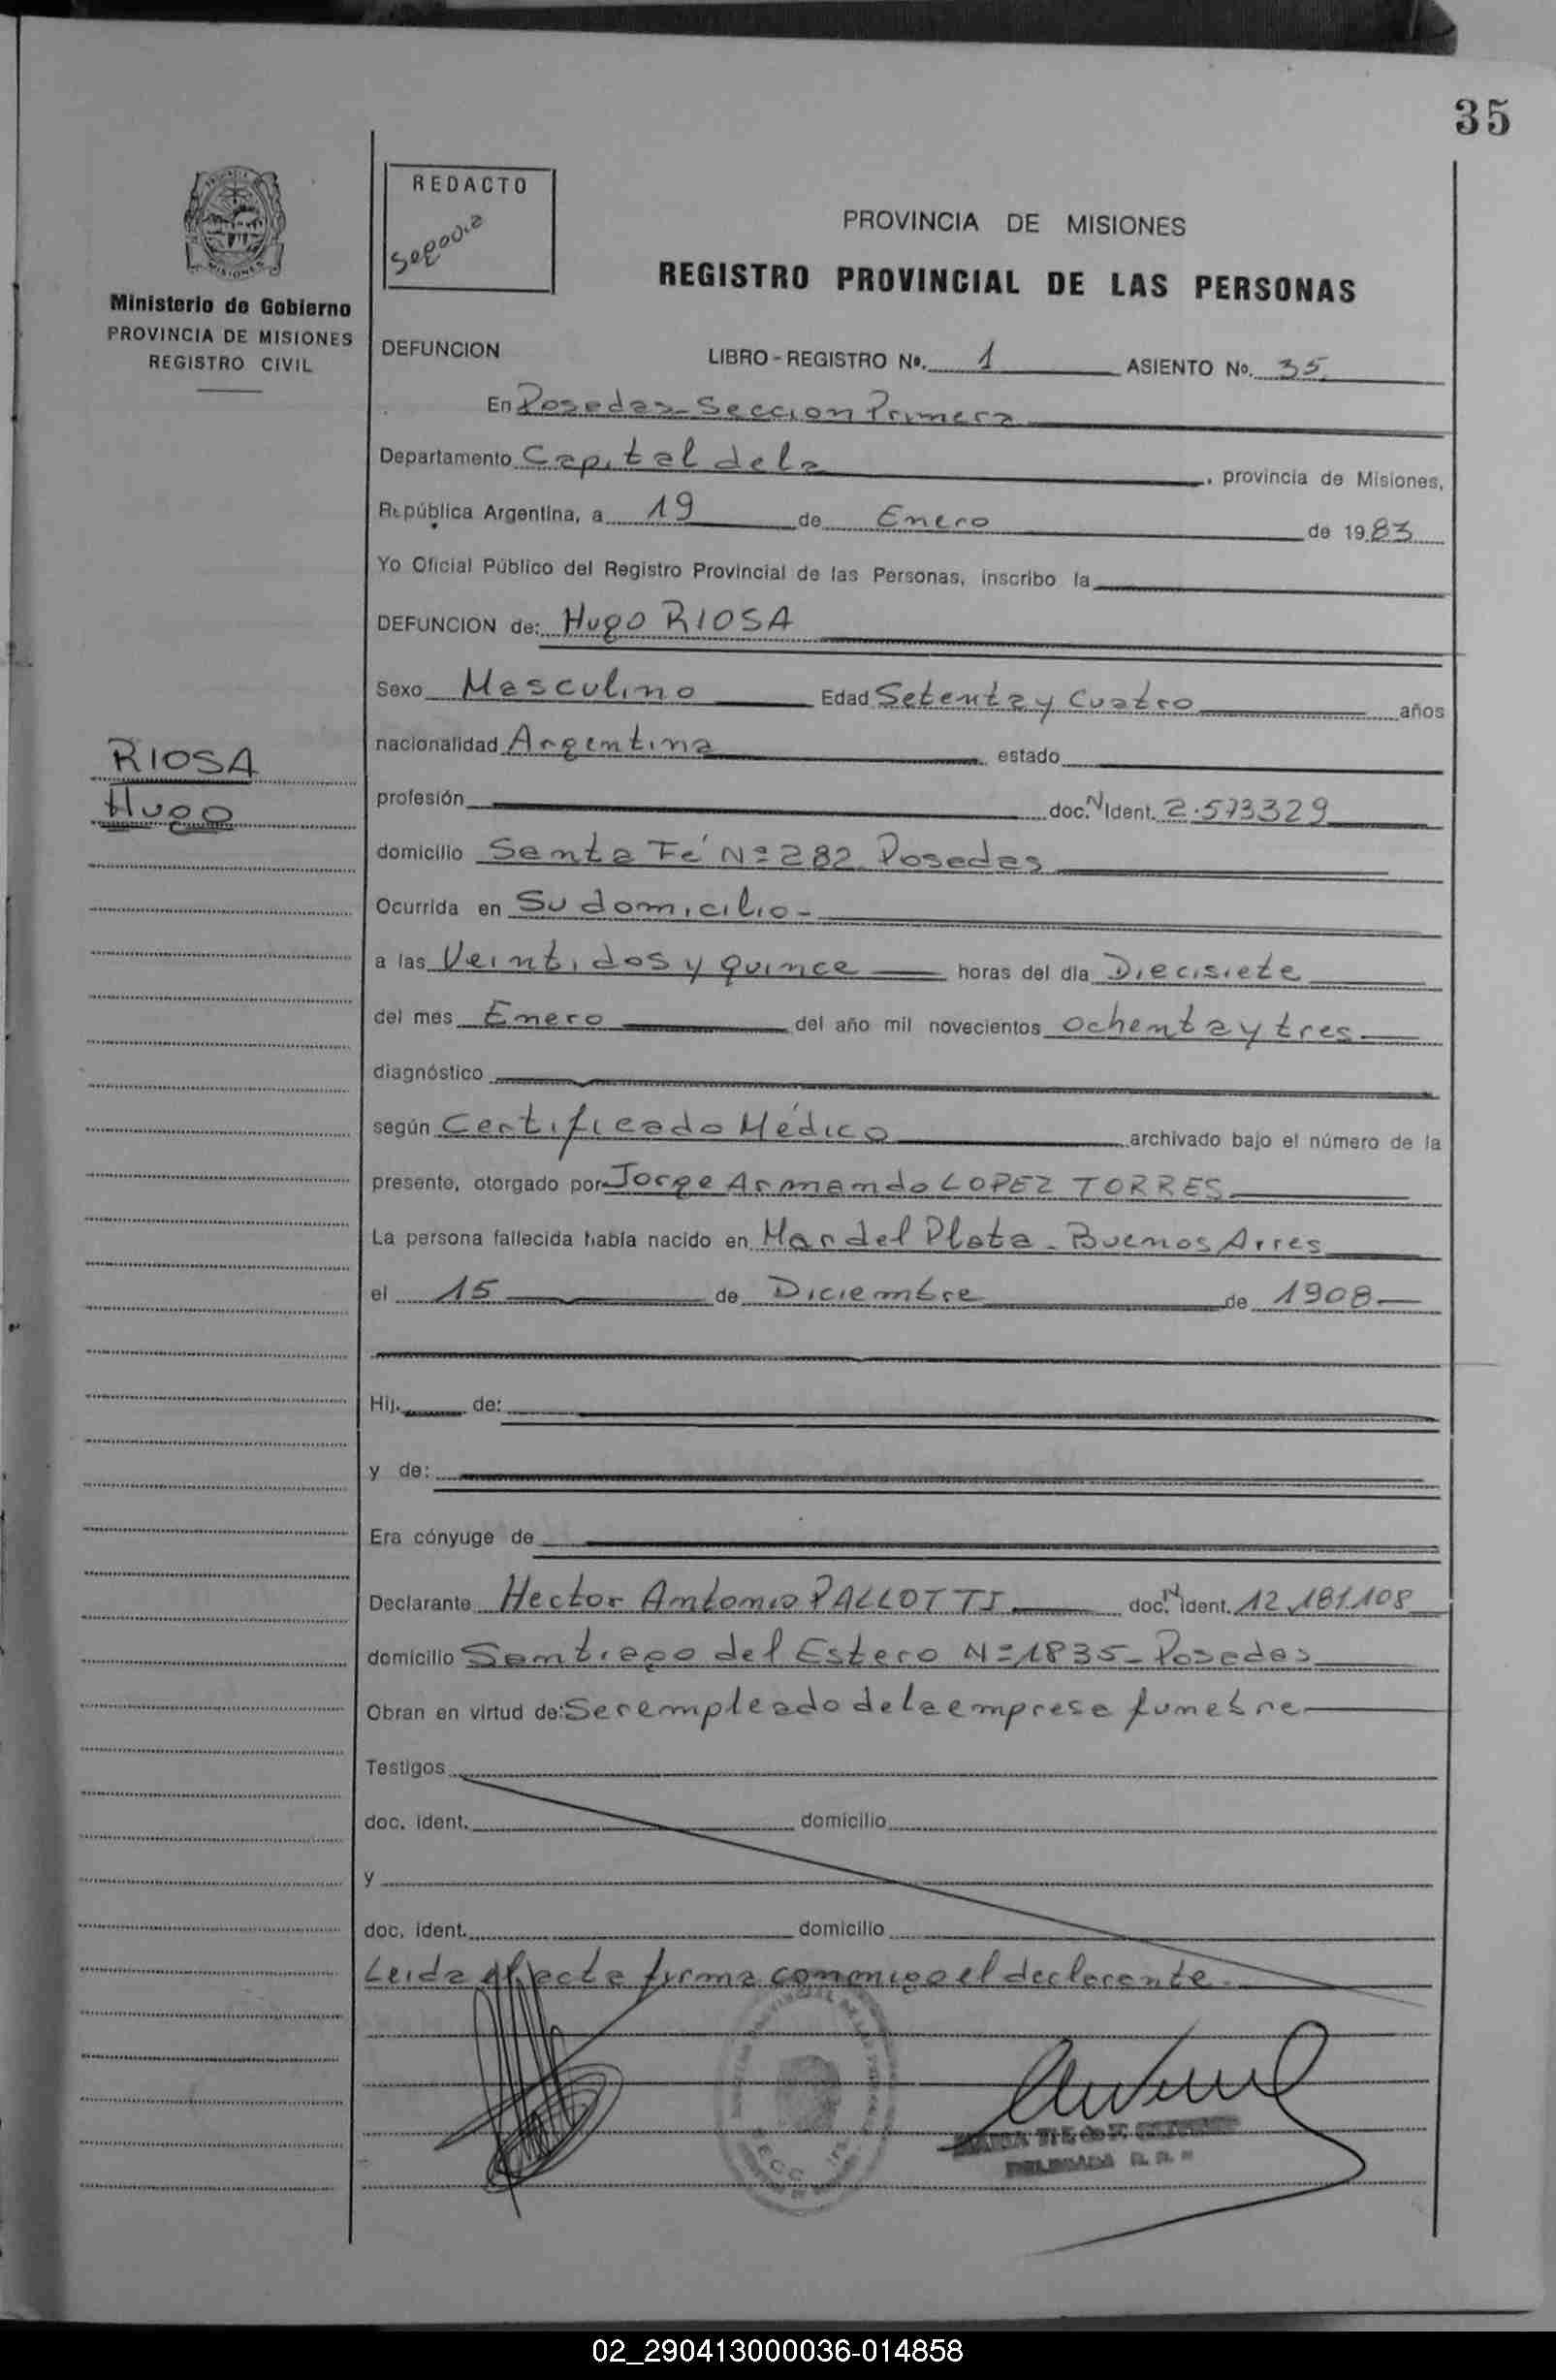 35
REDACTO
Segovia
PROVINCIA DE MISIONES
REGISTRO PROVINCIAL DE LAS PERSONAS
MISIONES
Ministerio de Gobierno
PROVINCIA DE MISIONES
REGISTRO CIVIL
DEFUNCION LIBRO - REGISTRO No. 1 ASIENTO No. 35
En Posadas - Seccion Primera
Departamento Capital de la , provincia de Misiones,
República Argentina, a 19 de Enero de 1983
Yo Oficial Público del Registro Provincial de las Personas, inscribo la
DEFUNCION de: Hugo RIOSA
Sexo Masculino Edad Setenta y Cuatro años
RIOSA
Hugo
nacionalidad Argentina estado
profesión doc. N Ident. 2.573329
domicilio Santa Fé Nº 282 Posadas
Ocurrida en Su domicilio -
a las Veintidos y quince horas del día Diecisiete
del mes Enero del año mil novecientos ochenta y tres
diagnóstico
según Certificado Médico archivado bajo el número de la
presente, otorgado por Jorge Armando LOPEZ TORRES
La persona fallecida había nacido en Mar del Plata - Buenos Aires
el 15 de Diciembre de 1908
Hij. de:
y de:
Era cónyuge de
Declarante Hector Antonio PALLOTTI doc. N ident. 12.181.108
domicilio Santiago del Estero Nº 1835 - Posadas
Obran en virtud de: Ser empleado de la empresa funebre
Testigos
doc. ident. domicilio
y
doc. ident. domicilio
Leida el acta firma conmigo el declarante.
MARIA
DELEGADA R. P.
02_290413000036-014858